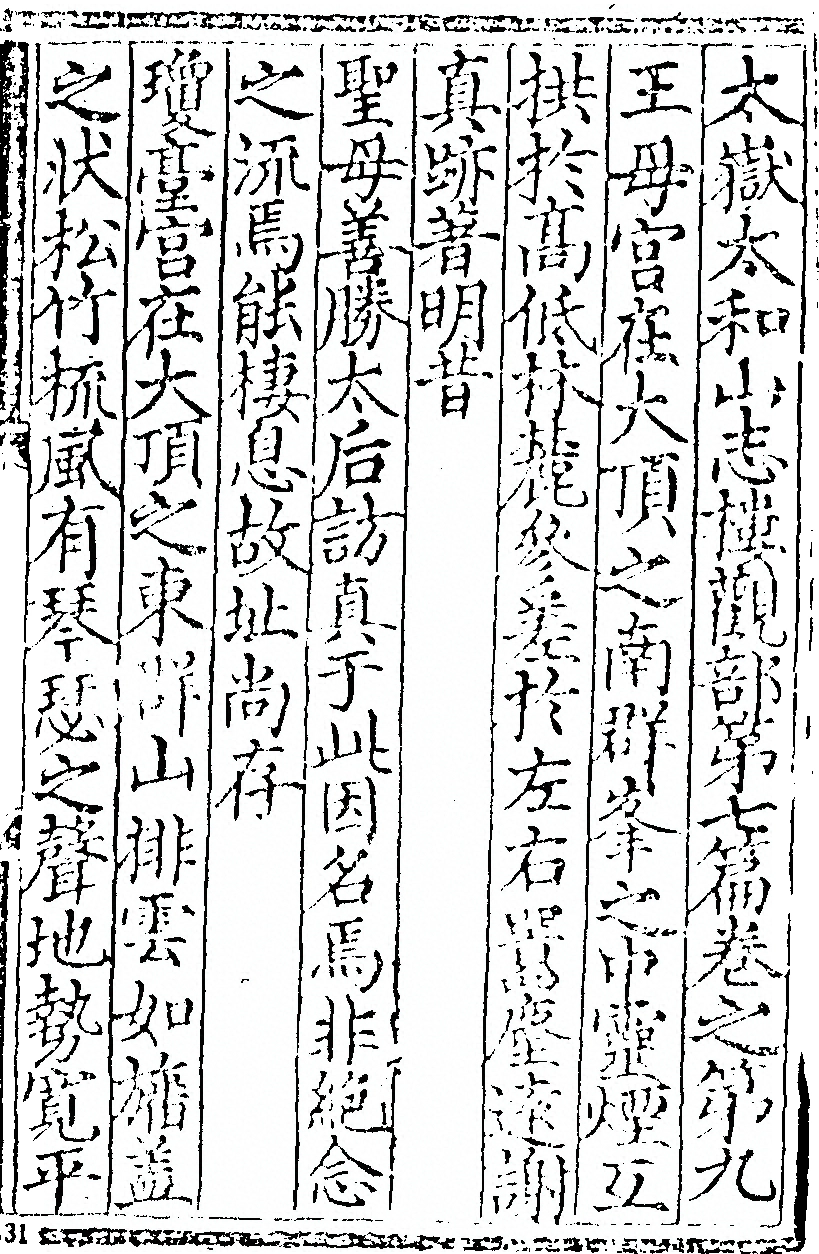 太嶽太和山志樓觀部第七篇卷之第九
王母宮在大頂之南群峯之中靈煙互
拱扵髙低林麓叅差扵左右嚣塵遠謝
真跡著明昔
聖母善勝太后訪真于此因名焉非絕念
之流焉能棲息故址尚存
瓊臺宮在大頂之東群山排雲如旛蓋
之狀松竹梳風有琴瑟之聲地勢寛平
31